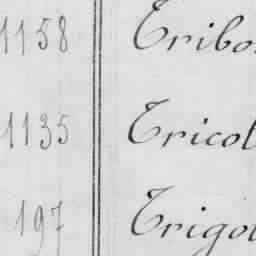 1158 Tribo
1135 Tricol
197 Trigo